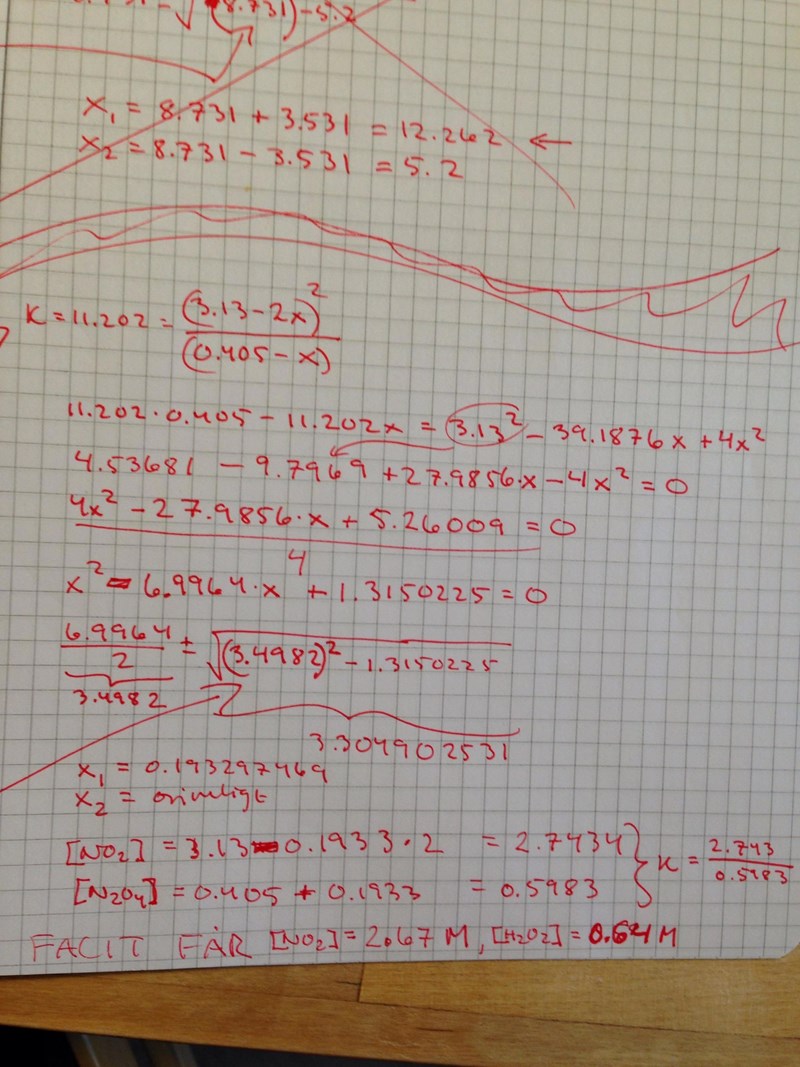 √(8.731)-5.2
x₁ = 8.731 + 3.531 = 12.262 ←
x₂ = 8.731 - 3.531 = 5.2
K = 11.202 = (3.13-2x)² / (0.405-x)
11.202·0.405 - 11.202x = 3.13² - 39.1876x + 4x²
4.53681 - 9.7969 + 27.9856·x - 4x² = 0
4x² - 27.9856·x + 5.26009 = 0
4
x² - 6.9964·x + 1.3150225 = 0
6.9964 / 2 ± √((3.4982)² - 1.3150225)
3.4982
3.304902531
x₁ = 0.193297469
x₂ = orimligt
[NO₂] = 3.13 - 0.1933·2 = 2.7434 } K = 2.743 / 0.5983
[N₂O₄] = 0.405 + 0.1933 = 0.5983
FACIT FÅR [NO₂] = 2.67 M, [H₂O₂] = 0.64 M